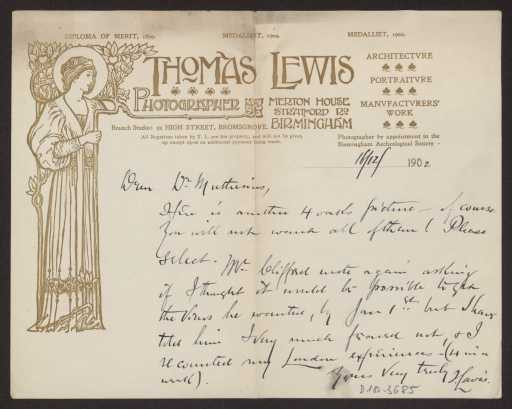 DIPLOMA OF MERIT, 1890. MEDALLIST, 1900. MEDALLIST, 1902.
THOMAS LEWIS
PHOTOGRAPHER
MERTON HOUSE,
STRATFORD RD
BIRMINGHAM
Branch Studio: 20 HIGH STREET, BROMSGROVE.
All Negatives taken by T. L. are his property, and will not be given
up except upon an additional payment being made.
ARCHITECTVRE
PORTRAITVRE
MANVFACTVRERS'
WORK
Photographer by appointment to the
Birmingham Archæological Society
16/12/1902
Dear Dr. Muthesius,
Here is another 4 oaks picture – of course
You will not want all of them! Please
select. Mr. Clifford wrote again asking
if I thought it would be possible to get
the Views he wanted, by Jan 1st but I have
told him I very much feared not, & I
recounted my London experiences – (4 in a
week).
Yours very truly TLewis.
D 102-3685